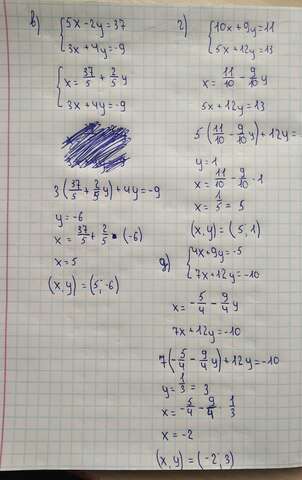 в) { 5x - 2y = 37
3x + 4y = -9
{ x = 37/5 + 2/5 y
3x + 4y = -9
3(37/5 + 2/5 y) + 4y = -9
y = -6
x = 37/5 + 2/5 · (-6)
x = 5
(x, y) = (5; -6)
г) { 10x + 9y = 11
5x + 12y = 13
x = 11/10 - 9/10 y
5x + 12y = 13
5(11/10 - 9/10 y) + 12y =
y = 1
x = 11/10 - 9/10 · 1
x = 1/5 = 5
(x, y) = (5, 1)
д) { 4x + 9y = -5
7x + 12y = -10
x = -5/4 - 9/4 y
7x + 12y = -10
7(-5/4 - 9/4 y) + 12y = -10
y = 1/3 = 3
x = -5/4 - 9/4 · 1/3
x = -2
(x, y) = (-2, 3)